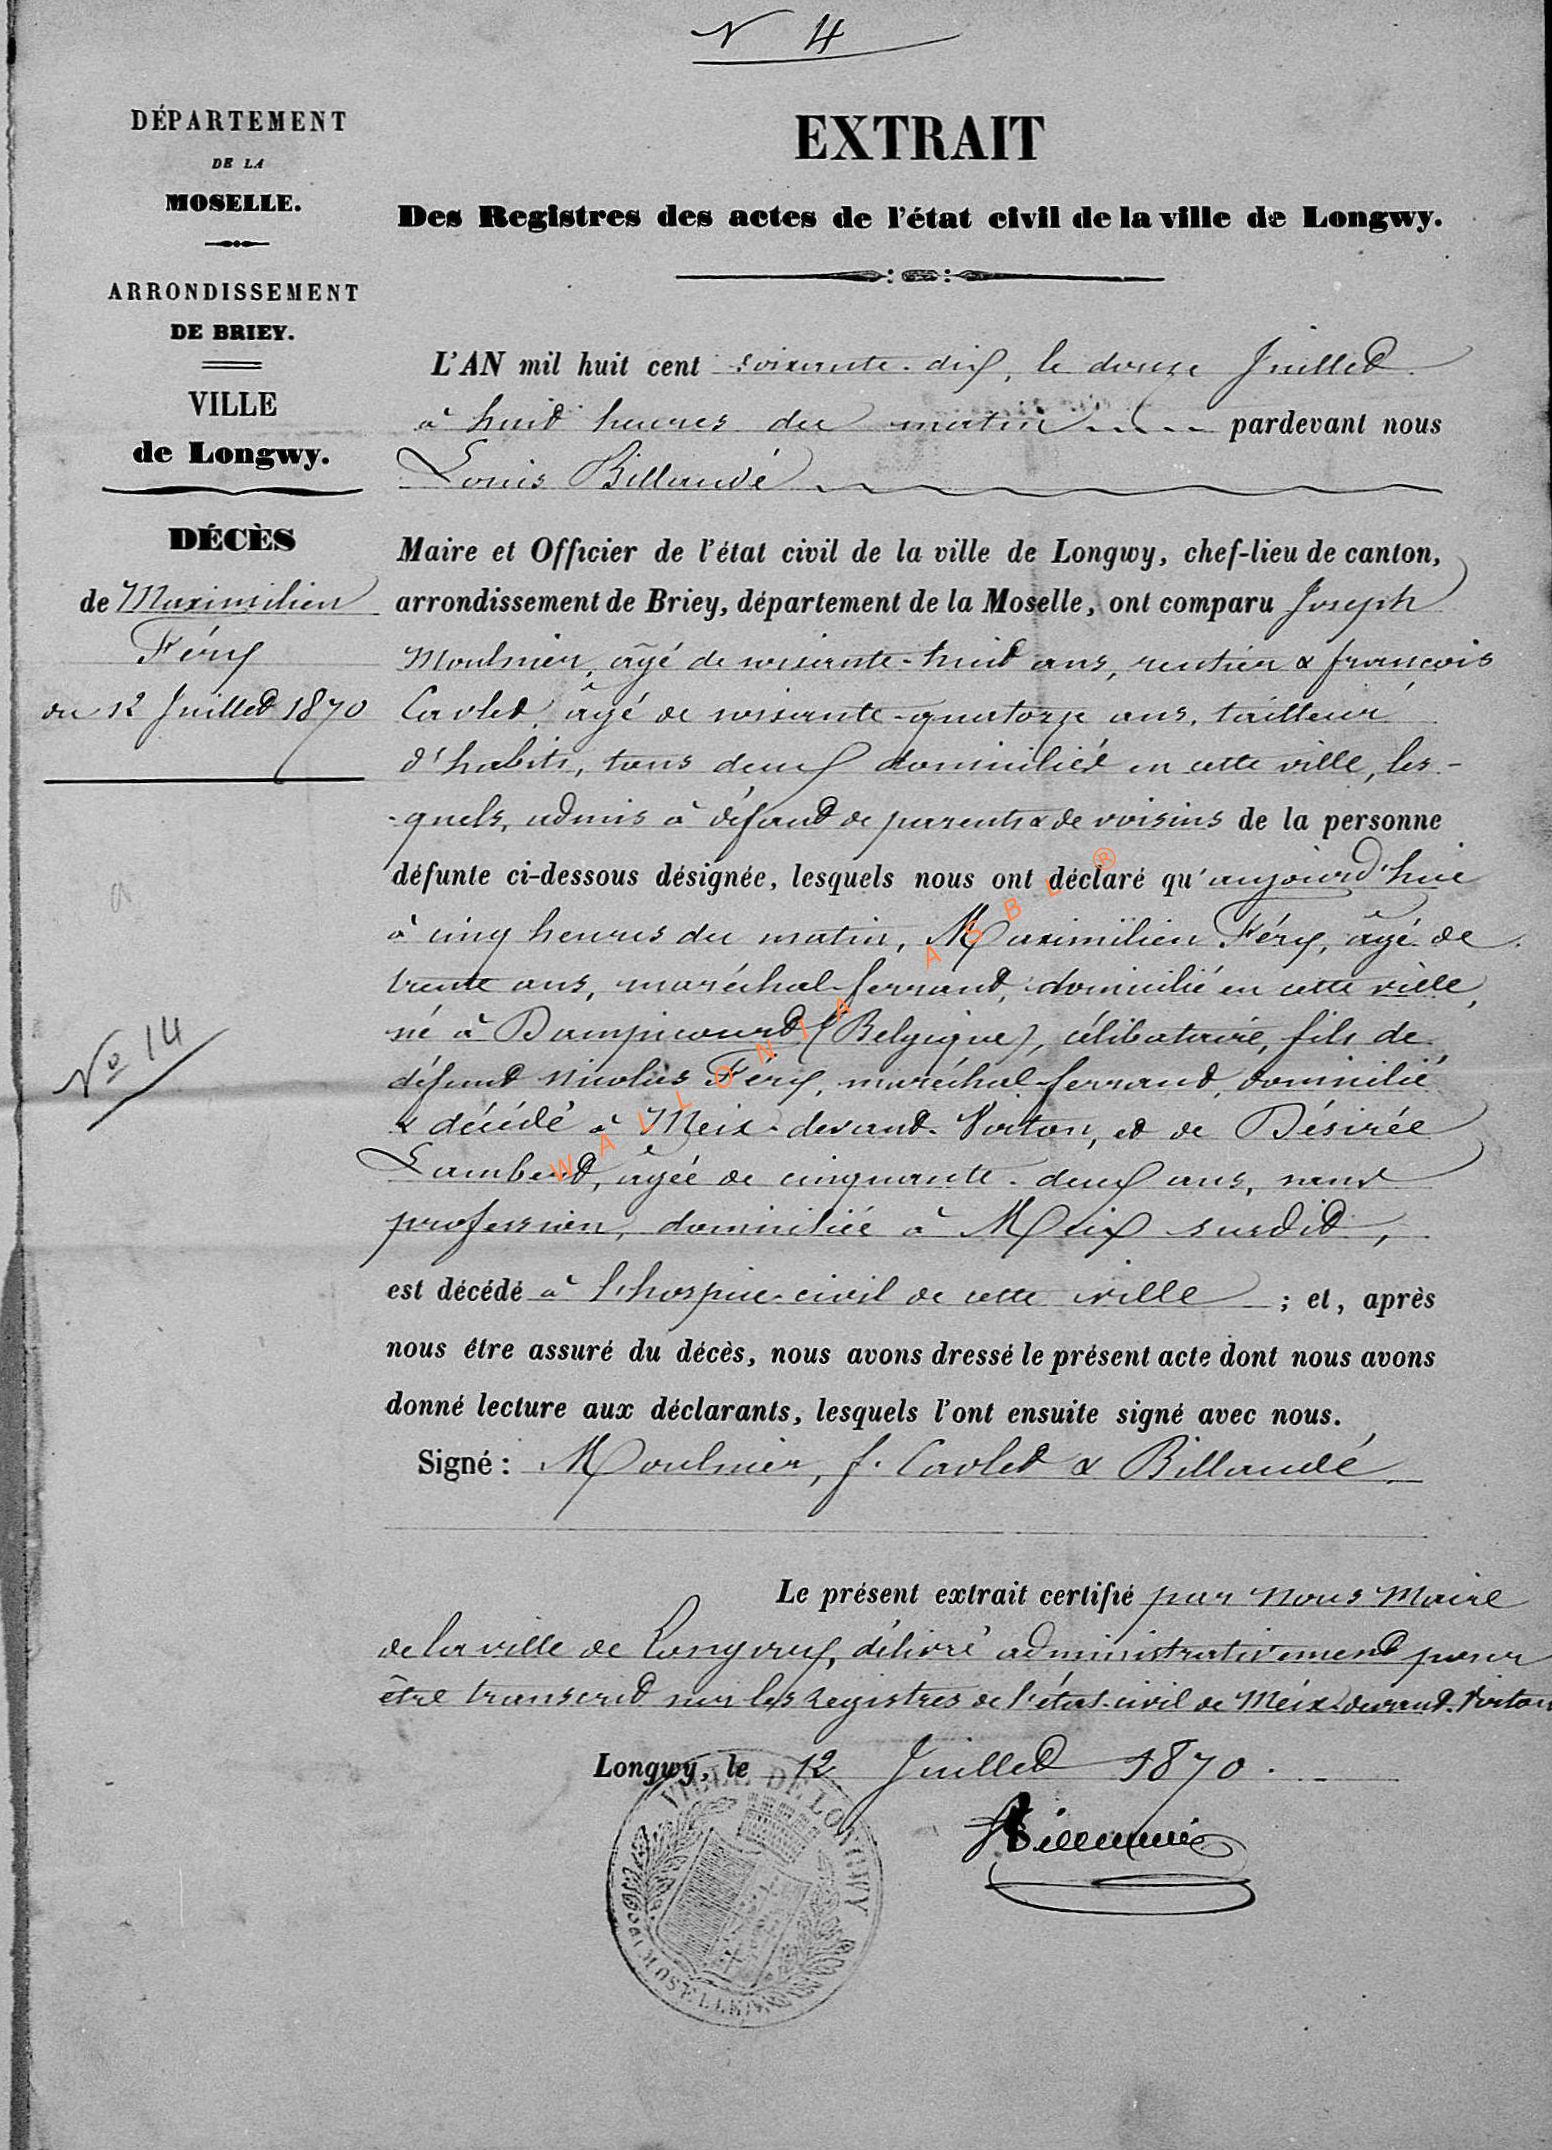 N 4
DÉPARTEMENT
DE LA
MOSELLE.
ARRONDISSEMENT
DE BRIEY.
VILLE
de Longwy.
DÉCÈS
de Maximilien
Féry
du 12 Juillet 1870
No 14
EXTRAIT
Des Registres des actes de l'état civil de la ville de Longwy.
L'AN mil huit cent soixante-dix, le douze Juillet
à huit heures du matin pardevant nous
Louis Billaudé
Maire et Officier de l'état civil de la ville de Longwy, chef-lieu de canton,
arrondissement de Briey, département de la Moselle, ont comparu Joseph
Moulnier, âgé de soixante-huit ans, rentier & françois
Cavlet, âgé de soixante-quatorze ans, tailleur
d'habits, tous deux domicilié en cette ville, les-
-quels, admis à défaut de parents & de voisins de la personne
défunte ci-dessous désignée, lesquels nous ont déclaré qu'aujourd'hui
à cinq heures du matin, Maximilien Féry, âgé de
trente ans, maréchal-ferrant, domicilié en cette ville,
né à Dampicourt (Belgique), célibataire, fils de
défunt Nicolas Féry, maréchal-ferrant, domicilié
& décédé à Meix-devant-Virton, et de Désirée
Lambert, âgée de cinquante-deux ans, sans
profession, domiciliée à Meix susdit,
est décédé à l'hospice civil de cette ville ; et, après
nous être assuré du décès, nous avons dressé le présent acte dont nous avons
donné lecture aux déclarants, lesquels l'ont ensuite signé avec nous.
Signé : Moulnier, f. Cavlet & Billaudé
Le présent extrait certifié par nous Maire
de la ville de Longwy, délivré administrativement pour
être transcrit sur les registres de l'état-civil de Meix-devant-Virton
Longwy, le 12 Juillet 1870.
Billaudé
VILLE DE LONGWY
MOSELLE
WALLONIA ASBL ®